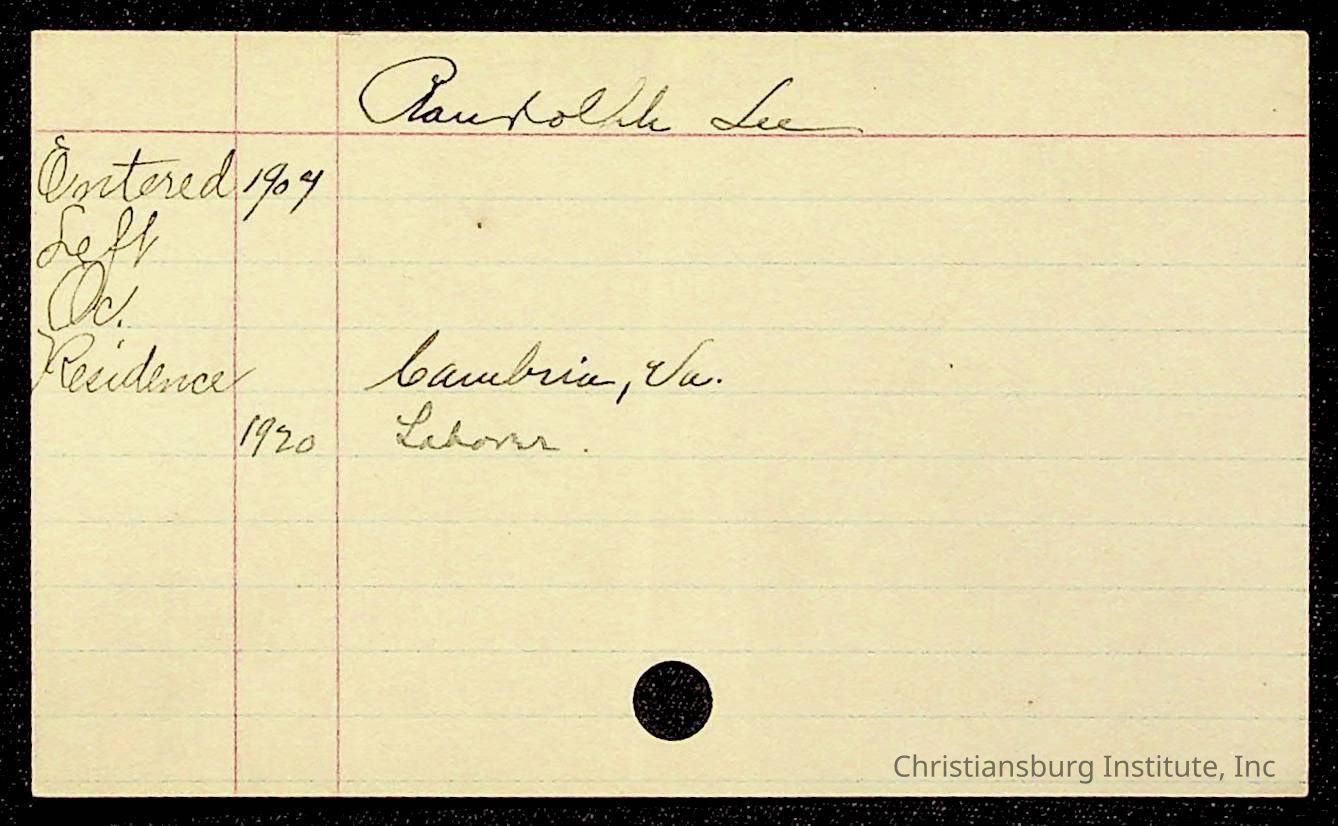 Randolph Lee
Entered 1904
Left
Oc.
Residence Cambria, Va.
1920 Laborer.
Christiansburg Institute, Inc